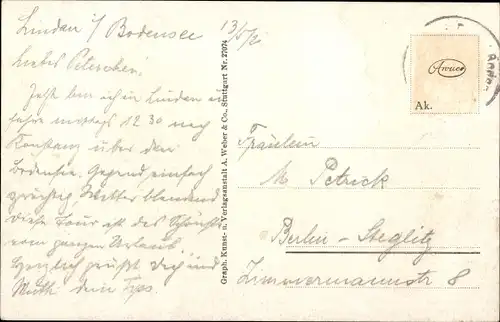 Lindau i/ Bodensee
13/5/2
Liebes Peterchen!
Jetzt bin ich in Lindau u
fahre mittags 12 30 nach
Konstanz über den
Bodensee. Gegend einfach
prächtig, Wetter blendend
Diese Tour ist das Schönste
vom ganzen Urlaub.
Herzlich grüßt Dich und
Mutti dein
Graph. Kunst- u. Verlagsanstalt A. Weber & Co., Stuttgart Nr. 27074
Ak.
Fräulein
M Petrick
Berlin - Steglitz
Zimmermannstr 8